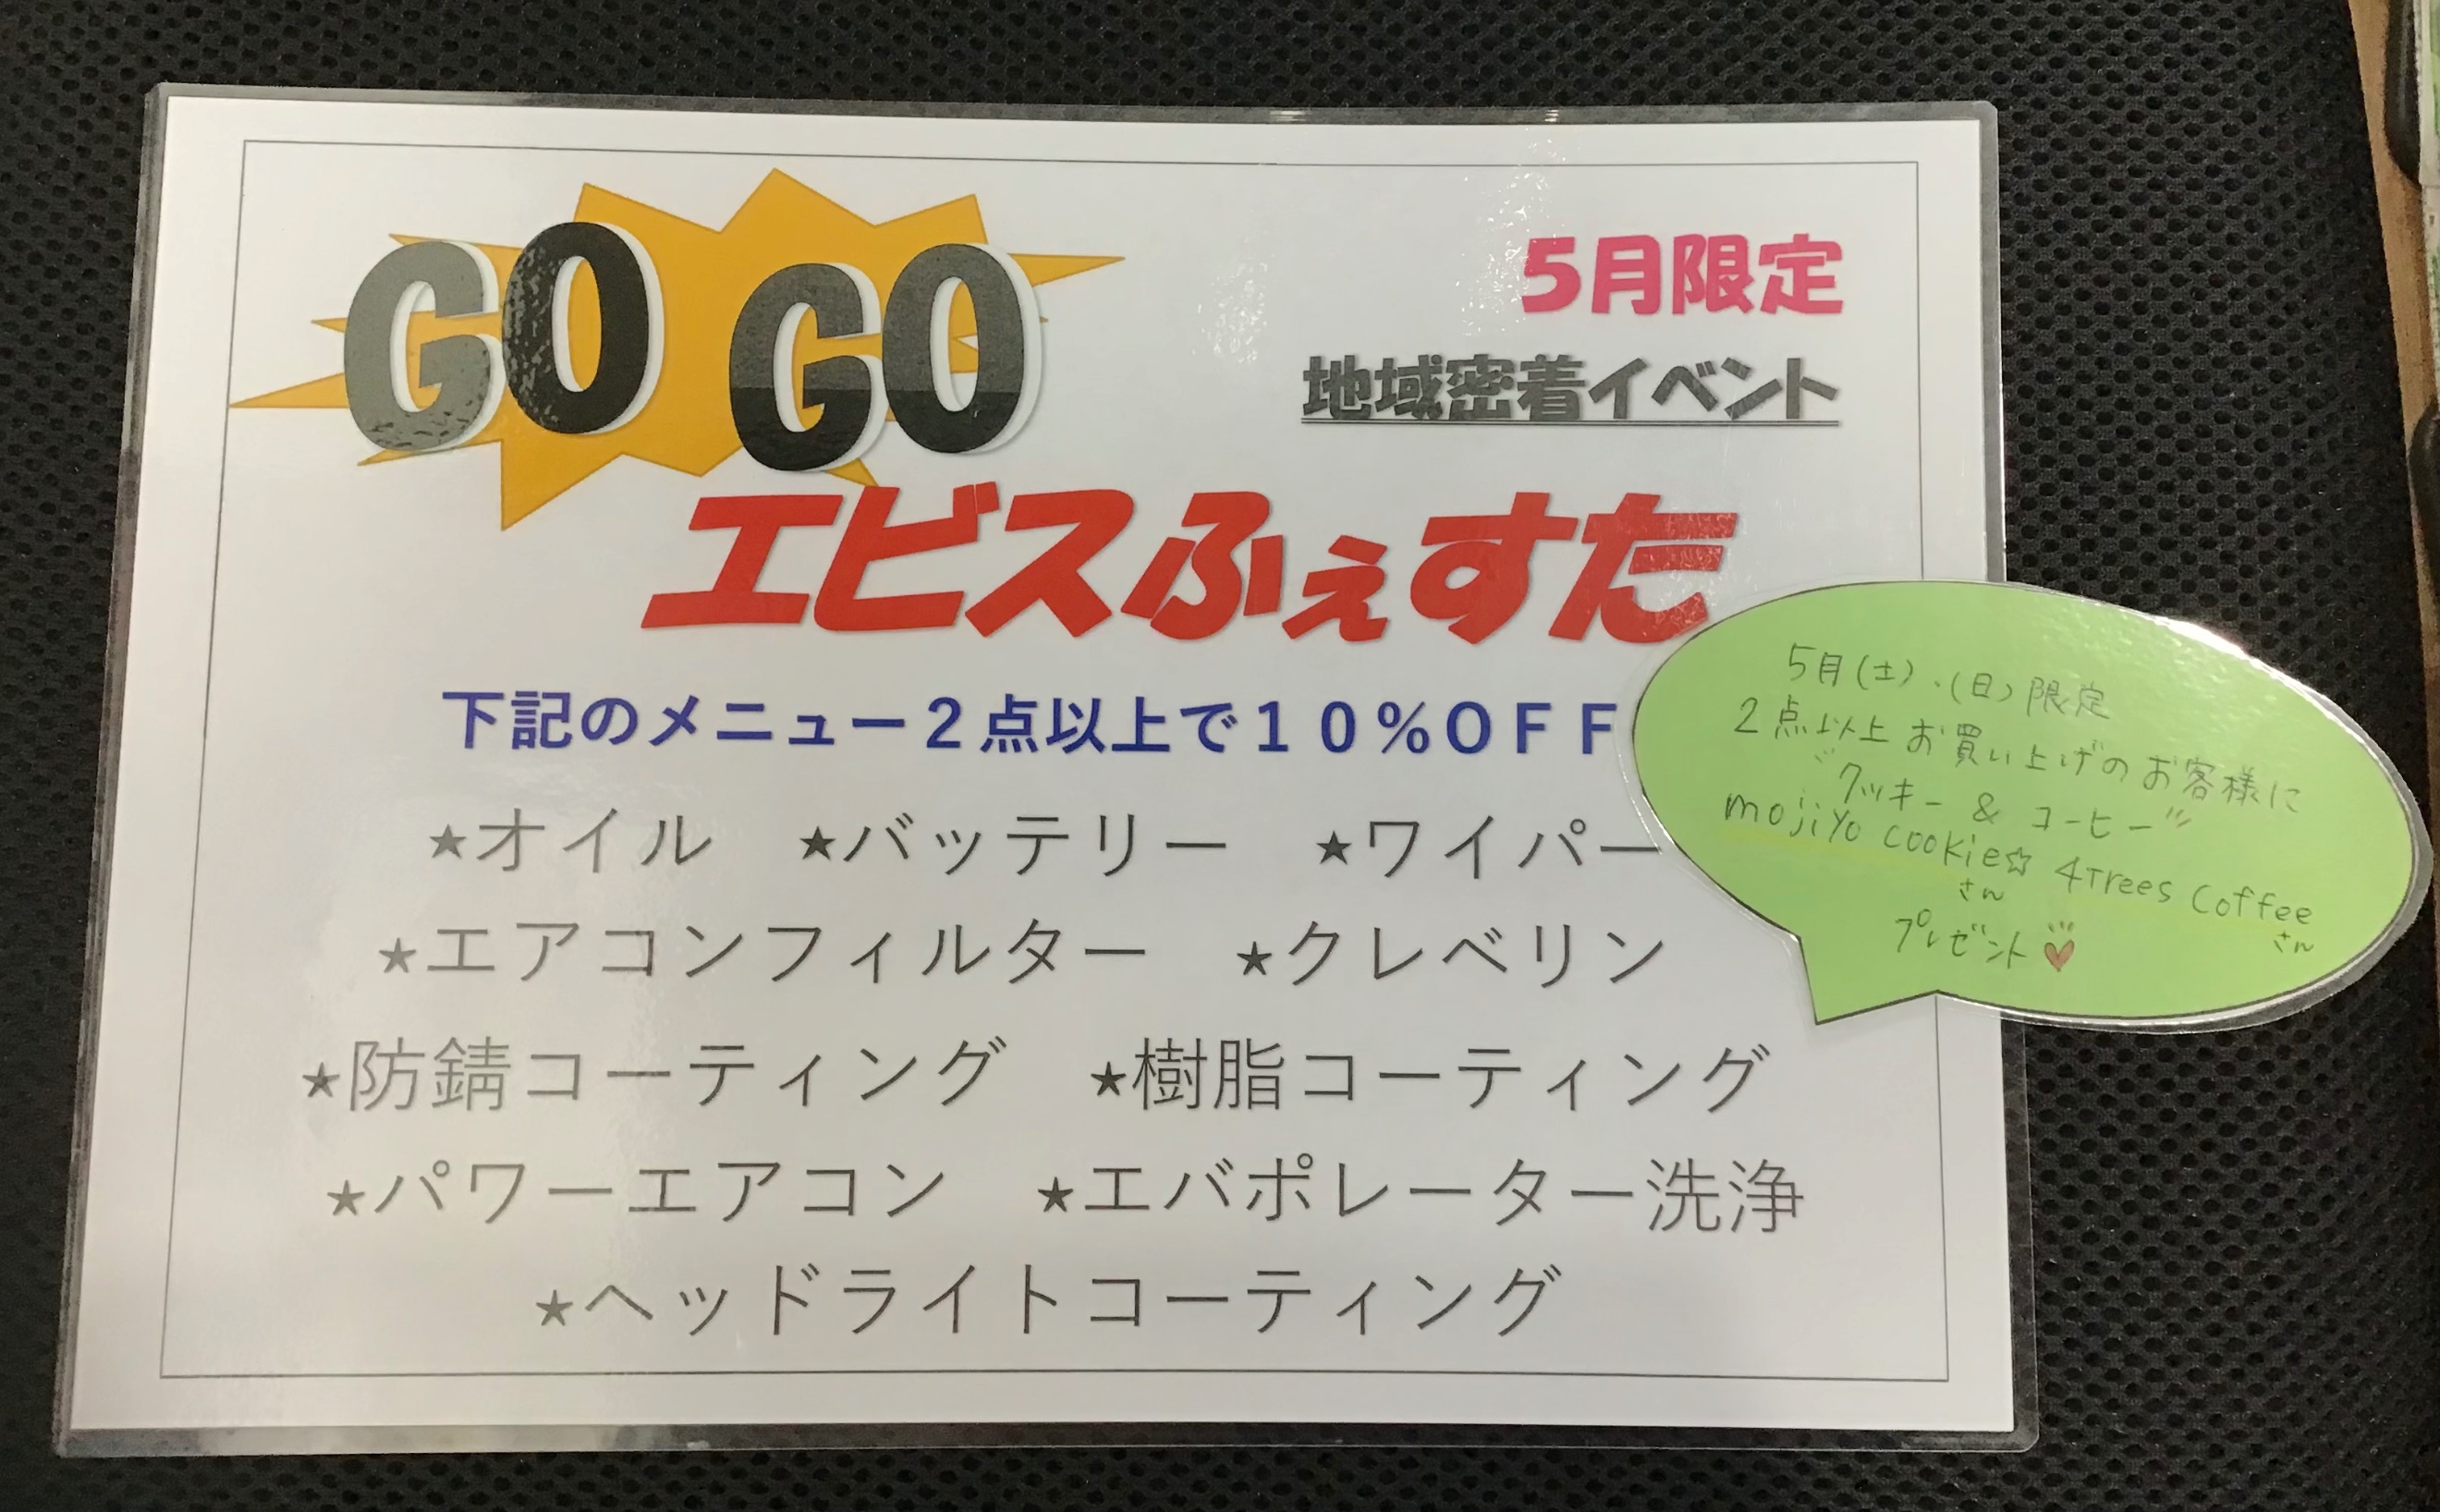 GO GO
5月限定
地域密着イベント
エビスふぇすた
下記のメニュー２点以上で１０％ＯＦＦ
★オイル　★バッテリー　★ワイパー
★エアコンフィルター　★クレベリン
★防錆コーティング　★樹脂コーティング
★パワーエアコン　★エバポレーター洗浄
★ヘッドライトコーティング
5月(土)・(日)限定
2点以上お買い上げのお客様に
クッキー & コーヒー
mojiyo cookie☆ 4Trees Coffee
さん　さん
プレゼント♥